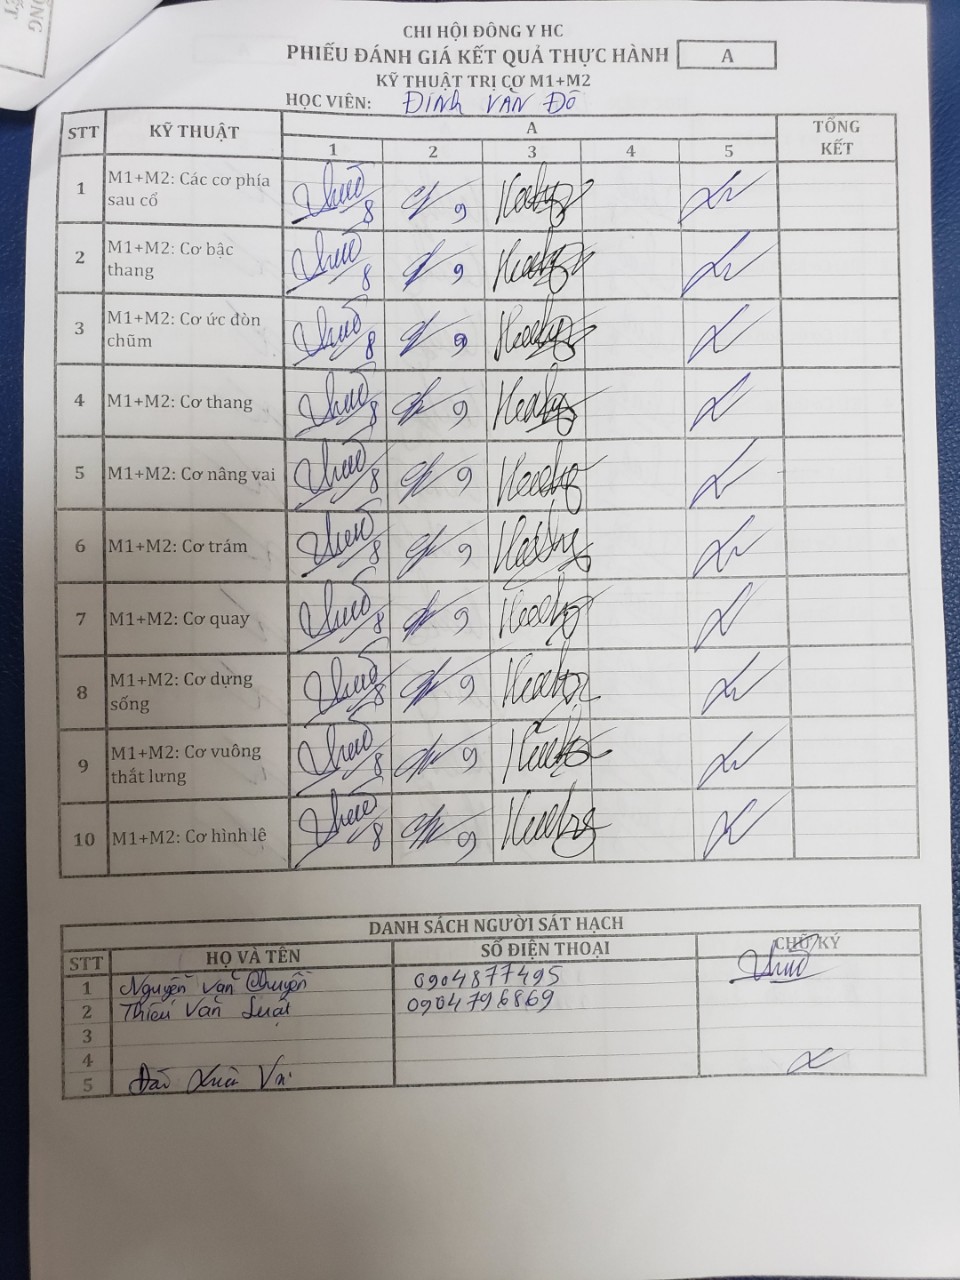 CHI HỘI ĐÔNG Y HC
PHIẾU ĐÁNH GIÁ KẾT QUẢ THỰC HÀNH A
KỸ THUẬT TRỊ CƠ M1+M2
HỌC VIÊN: ĐINH VĂN ĐÔ
STT KỸ THUẬT A TỔNG KẾT
1 2 3 4 5
1 M1+M2: Các cơ phía sau cổ 8 9
2 M1+M2: Cơ bậc thang 8 9
3 M1+M2: Cơ ức đòn chũm 8 9
4 M1+M2: Cơ thang 8 9
5 M1+M2: Cơ nâng vai 8 9
6 M1+M2: Cơ trám 8 9
7 M1+M2: Cơ quay 8 9
8 M1+M2: Cơ dựng sống 8 9
9 M1+M2: Cơ vuông thắt lưng 8 9
10 M1+M2: Cơ hình lê 8 9
DANH SÁCH NGƯỜI SÁT HẠCH
STT HỌ VÀ TÊN SỐ ĐIỆN THOẠI CHỮ KÝ
1 Nguyễn Văn Chuyền 0904877495
2 Thiều Văn Luật 0904796869
3
4
5